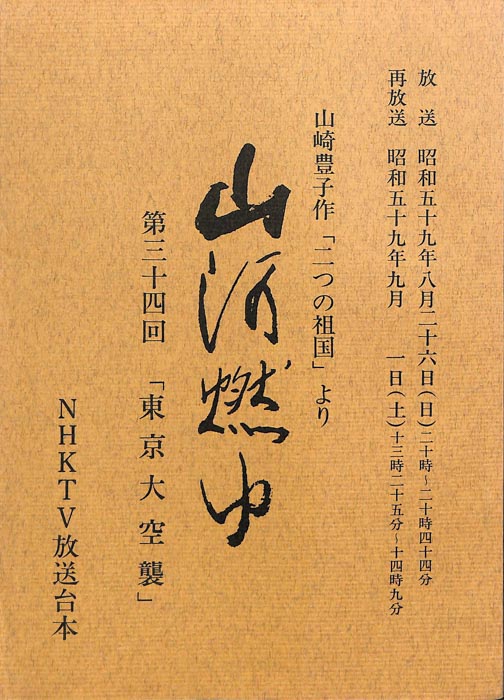 放　送　昭和五十九年八月二十六日(日)二十時～二十時四十四分
再放送　昭和五十九年九月　一日(土)十三時二十五分～十四時九分
山崎豊子作「二つの祖国」より
山河燃ゆ
第三十四回　「東京大空襲」
NHKTV放送台本